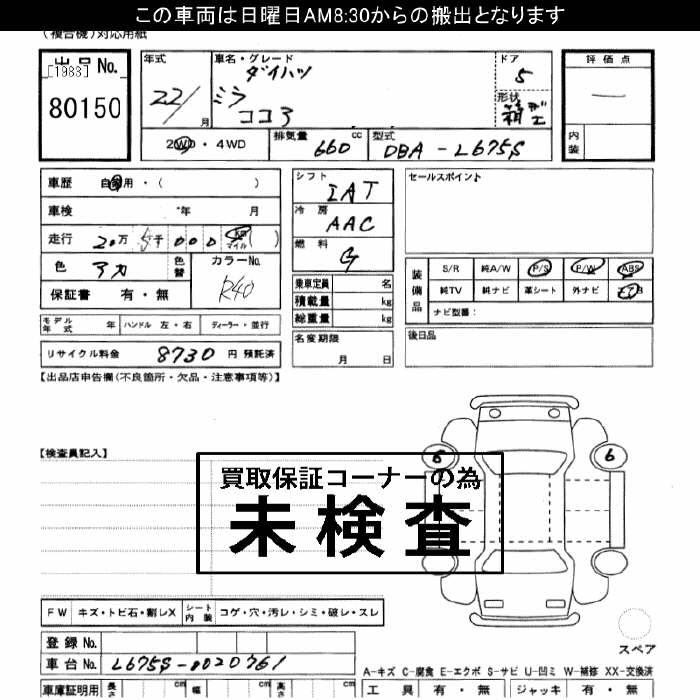 この車両は日曜日AM8:30からの搬出となります
(複合機)対応用紙
出品 No.
[1983]
80150
年式 22/ 月
車名・グレード ダイハツ
ミラ
ココア
ドア 5
形状
評価点
―
内装
2WD・4WD
排気量 660 cc
型式 DBA-L675S
車歴 自家用・( )
車検 年 月
走行 20万5千000 マイル( )
色 アカ
色替
カラーNo. R40
保証書 有・無
シフト IAT
冷房 AAC
燃料 G
乗車定員 名
積載量 kg
総重量 kg
セールスポイント
装備品
S/R 純A/W P/S P/W ABS
純TV 純ナビ 革シート 外ナビ
ナビ型番:
モデル年式 年 ハンドル 左・右 ディーラー・並行
名変期限
月 日
後日品
リサイクル料金 8730 円 預託済
【出品店申告欄(不良箇所・欠品・注意事項等)】
【検査員記入】
買取保証コーナーの為
未検査
8
6
FW キズ・トビ石・割レX シート内装 コゲ・穴・汚レ・シミ・破レ・スレ
スペア
登録 No.
車台 No. L675S-0020761
A-キズ C-腐食 E-エクボ S-サビ U-凹ミ W-補修 XX-交換済
車庫証明用 長さ cm 幅 cm 高さ cm
工具 有・無 ジャッキ 有・無